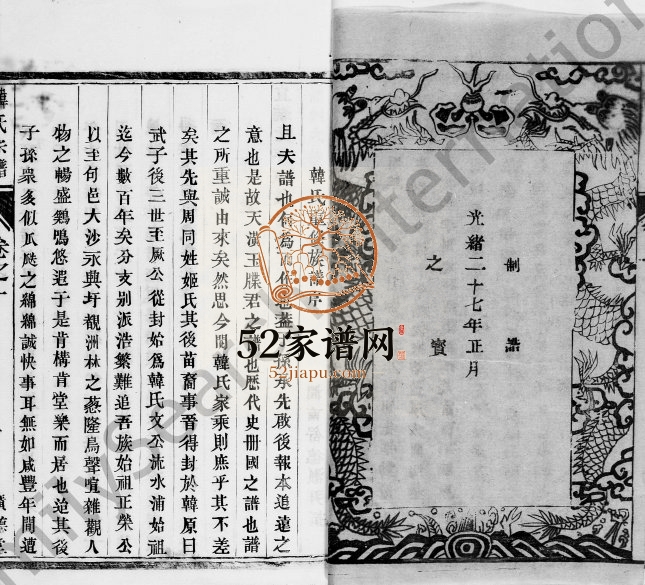 制誥
光緒二十七年正月
之寶
韓氏 族譜序
且夫譜也何為而作也蓋 孫承先啟後報本追遠之
意也是故天潢玉牒君之譜也歷代史冊國之譜也譜
之所重誠由來矣然思今閱韓氏家乘則庶乎其不差
矣其先與周同姓姬氏其後苗裔事晉得封於韓原曰
武子後三世至厥公從封始為韓氏文公 水浦始祖
迄今數百年矣分支別派浩繁難追吾族始祖正榮公
以至句邑大沙永興圩觀洲林之蔥隆鳥聲喧雜觀人
物之暢盛鷄鴨悠遊于是肯構肯堂樂而居也迨其後
子孫眾多似瓜瓞之綿綿誠快事耳無如咸豐年間遭
韓氏宗譜
卷之一
52家谱网
52jiapu.com
FamilySearch International